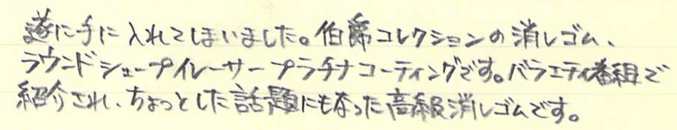 遂に手に入れてしまいました。伯爵コレクションの消しゴム、
ラウンドシェープイレーサープラチナコーティングです。バラエティ番組で
紹介され、ちょっとした話題にもなった高級消しゴムです。